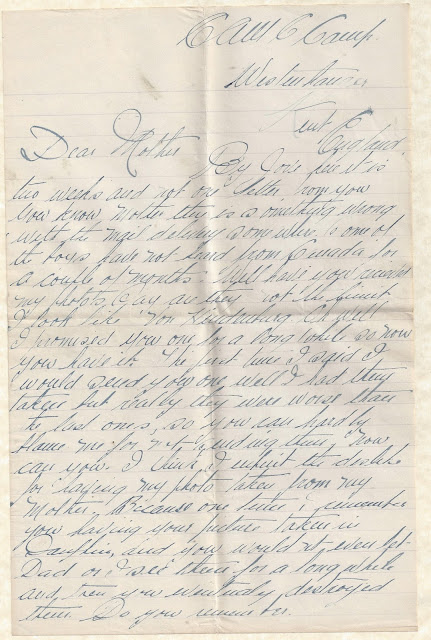 Camp.
Westenhanger
Kent
England.
Dear Mother
By Jove here it is
two weeks and not one letter from you
You know, Mother there is something wrong
with the mail delivery somewhere as some of
the boys have not heard from Canada for
a couple of months. Well have you received
my photo, Say are they not the funny
I look like Von Hindenburg. Oh well
I promised you one for a long while so now
you have it. The first time I said I
would send you one well I had them
taken but really they were worse than
the last ones, so you can hardly
blame me for not sending them, now
can you. I think I inherit the dislike
for having my photo taken from my
mother. Because one time I remember
you having your picture taken in
Dauphin, and you wouldn't even let
Dad or I see them for a long while
and then you eventually destroyed
them. Do you remember.